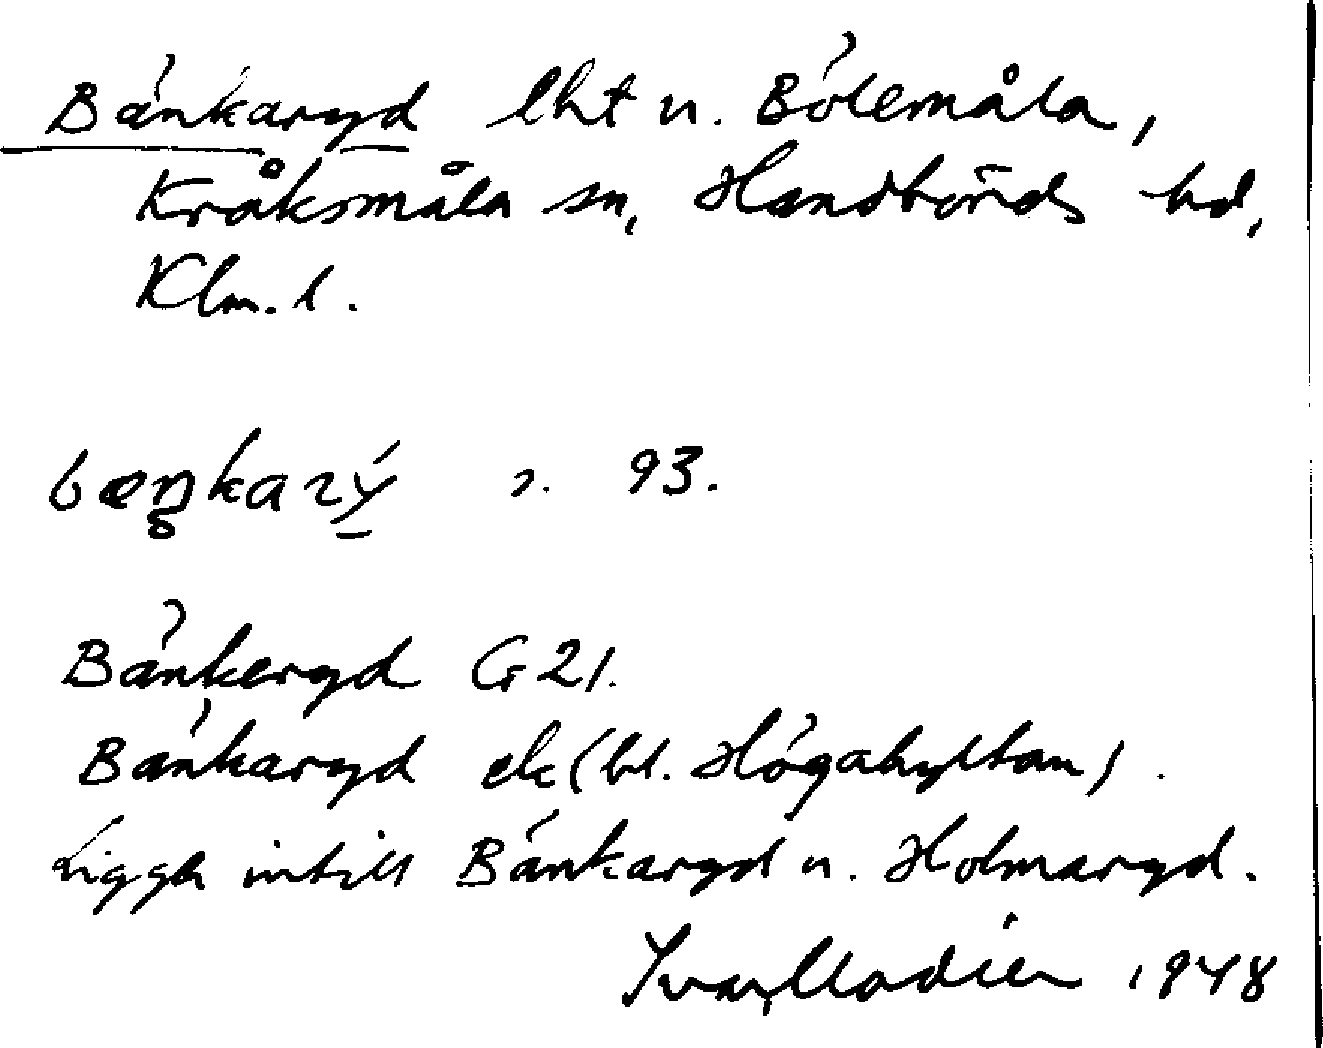 Bänkaryd lht u. Bölemåla,
Kråksmåla sn, Handbörds hd,
Klm. l.
bæŋkarý s. 93.
Bänkeryd G 21.
Bänkaryd ek (bl. Högahyltan).
Ligger intill Bänkaryd u. Holmaryd.
Ivar Modéer 1948